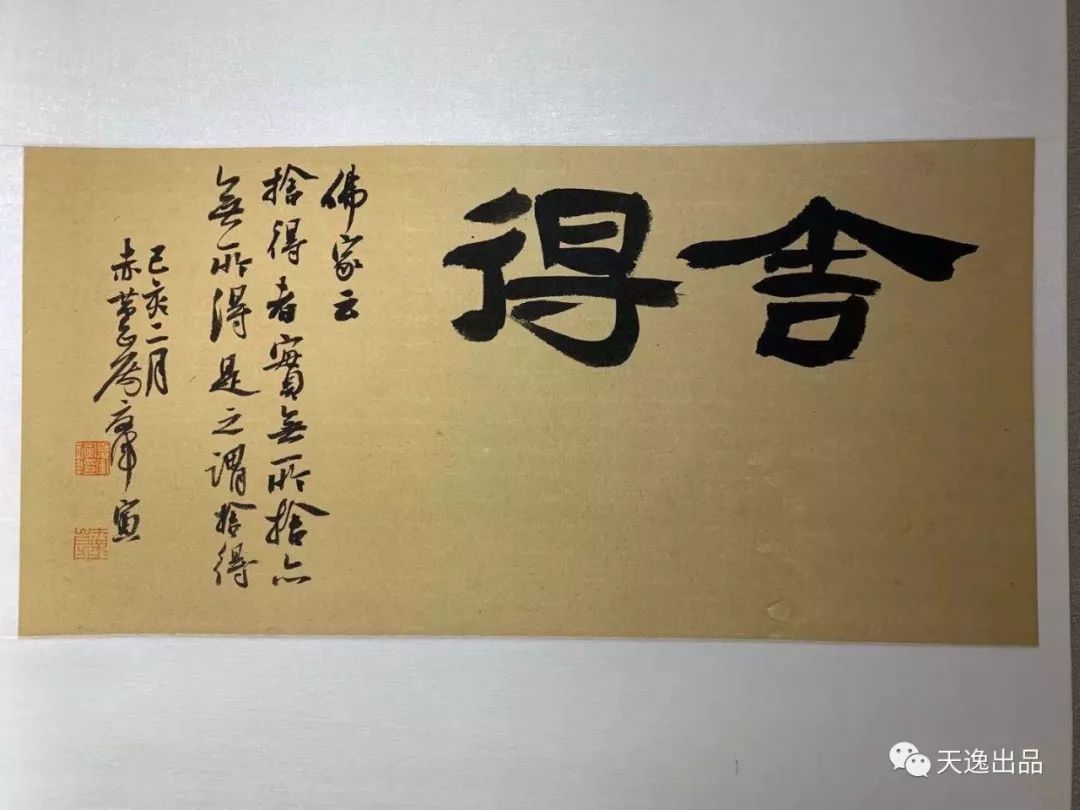 舍得
佛家云
捨得者實無所捨亦
無所得是之謂捨得
己亥二月
赤
寅
天逸出品